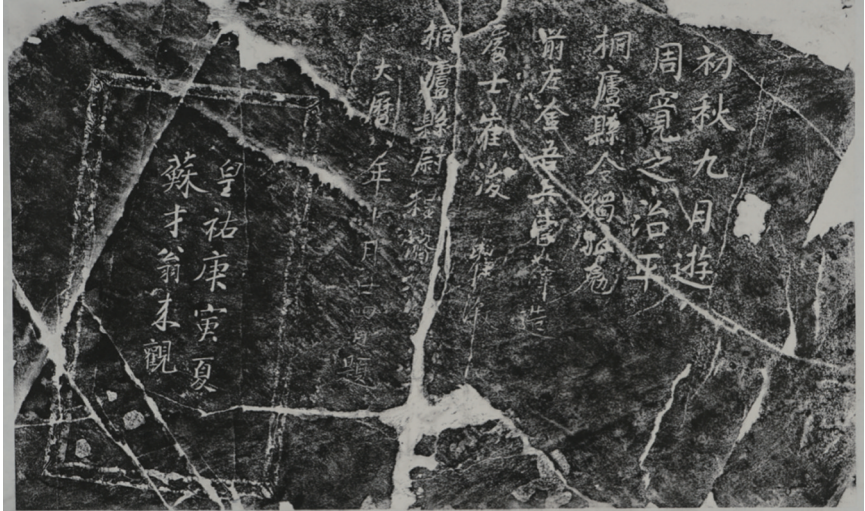 初秋九月遊
周寬之治平
桐廬縣令獨孤勉
前左金吾兵曹造
處士崔浚
桐廬縣尉
大曆年十月廿日題
皇祐庚寅夏
蘇才翁来觀